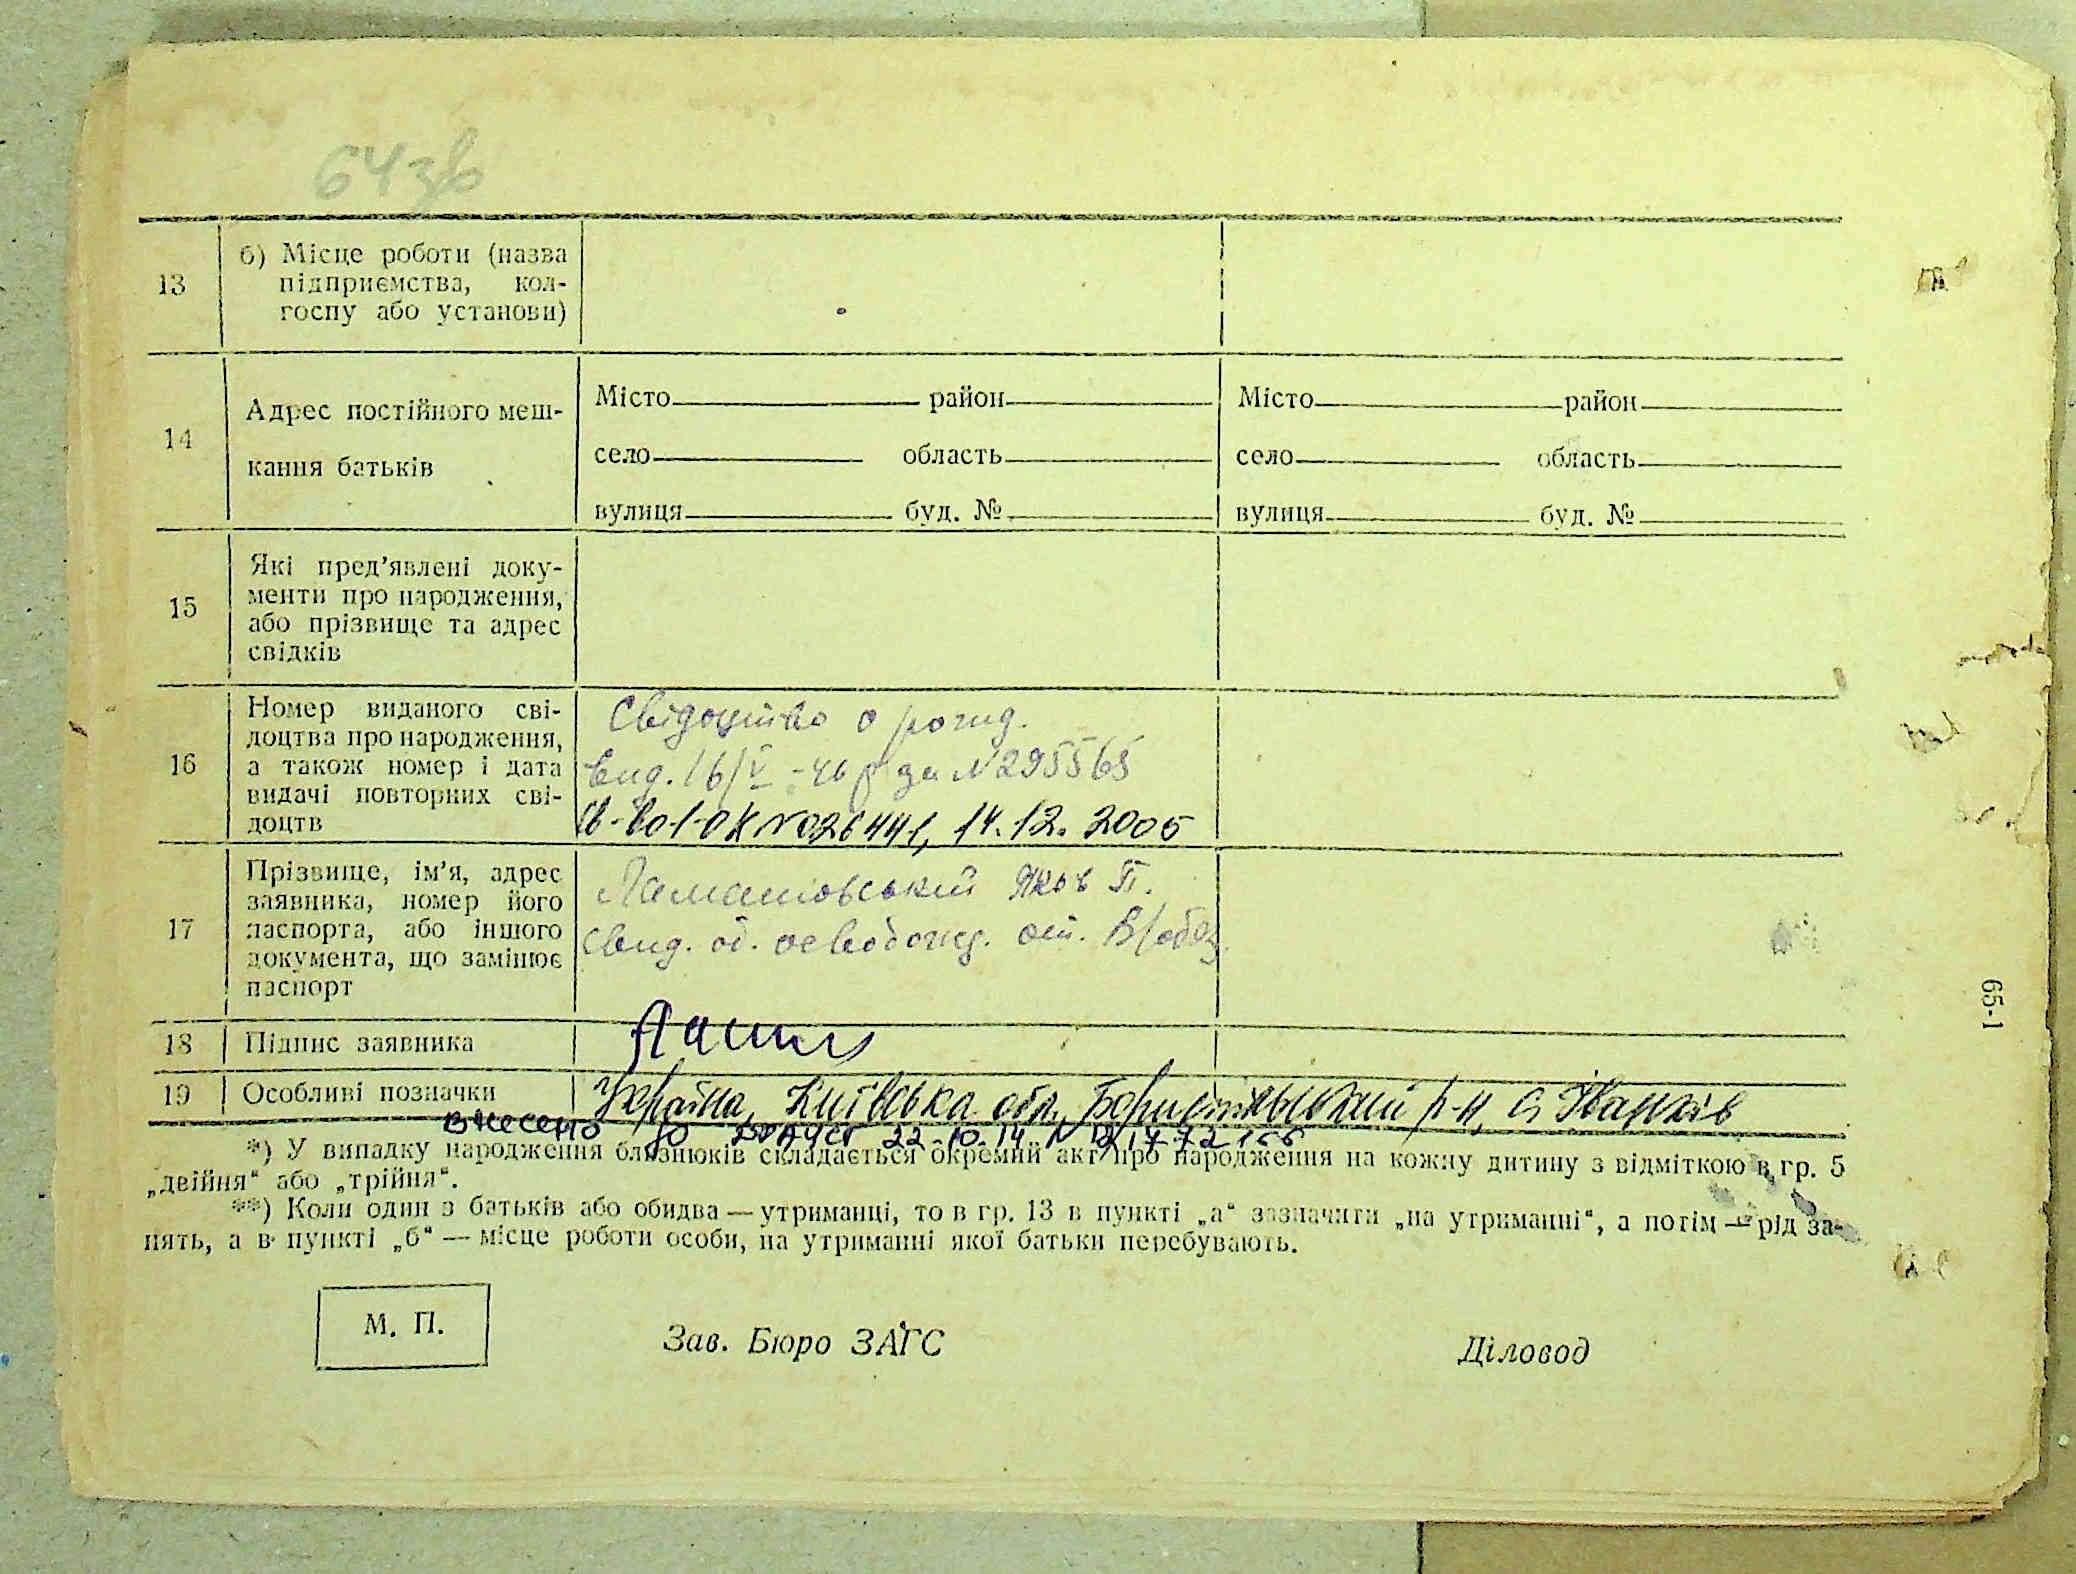 64зв
13 б) Місце роботи (назва
підприємства, кол-
госпу або установи)
14 Адрес постійного меш-
кання батьків
Місто район Місто район
село область село область
вулиця буд. № вулиця буд. №
15 Які пред’явлені доку-
менти про народження,
або прізвище та адрес
свідків
16 Номер виданого сві-
доцтва про народження,
а також номер і дата
видачі повторних сві-
доцтв
Свідоцтво о рожд.
вид. 16/V -46 р за №295565
Св-во 1-ОК №026441, 14.12.2005
17 Прізвище, ім’я, адрес
заявника, номер його
паспорта, або іншого
документа, що замінює
паспорт
Яков П.
свид. об освобожд. от. В/обяз.
18 Підпис заявника
19 Особливі позначки
Україна, Київська обл., Бориспільський р-н, с. Іванків
Внесено до 22.10.14
*) У випадку народження близнюків складається окремий акт про народження на кожну дитину з відміткою в гр. 5
„двійня“ або „трійня“.
**) Коли один з батьків або обидва — утриманці, то в гр. 13 в пункті „а“ зазначити „на утриманні“, а потім — рід за-
нять, а в пункті „б“ — місце роботи особи, на утриманні якої батьки перебувають.
М. П. Зав. Бюро ЗАГС Діловод
65-1